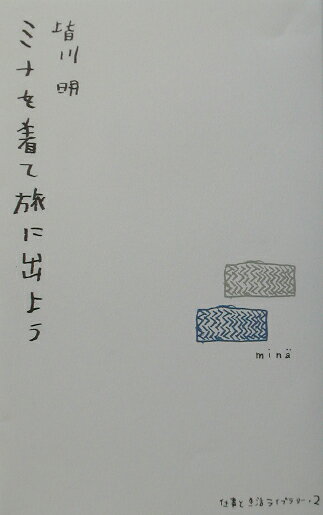 皆川明
ミナを着て旅に出よう
minä
仕事と生活ライブラリー・2